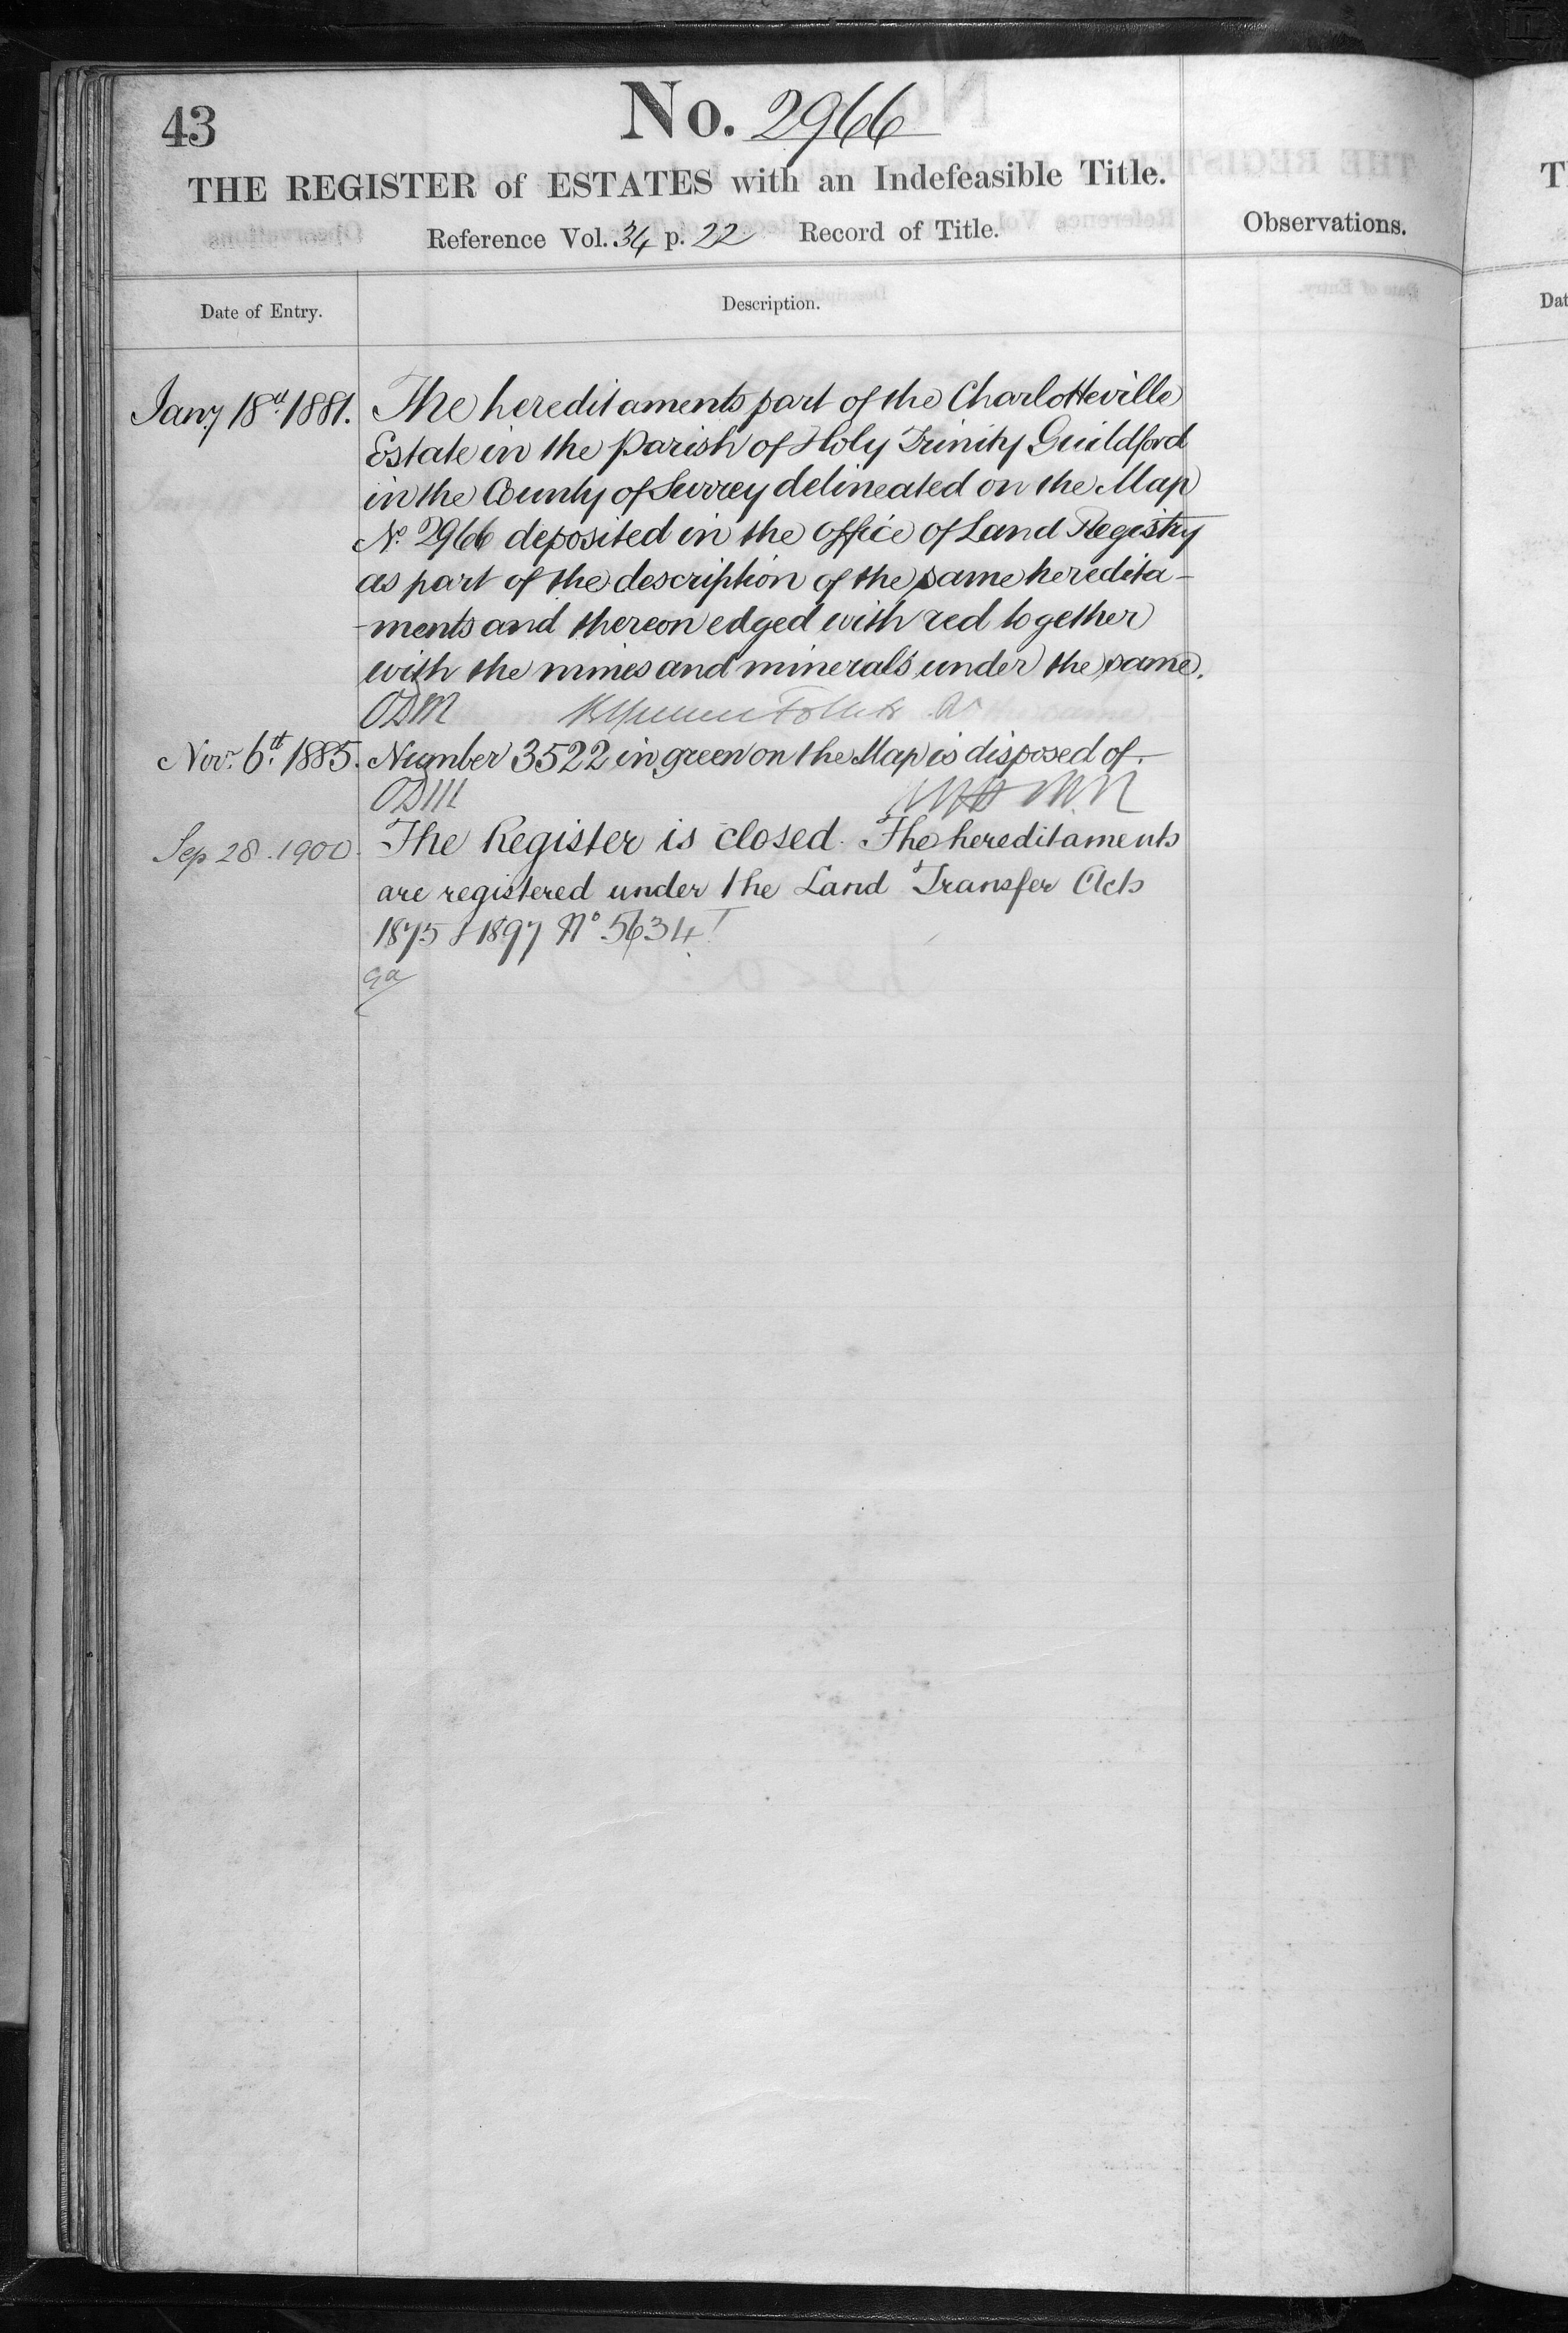 43
No. 2966
THE REGISTER of ESTATES with an Indefeasible Title.
Reference Vol. 34 p. 22 Record of Title.
Observations.
Date of Entry.
Description.
Jany 18th 1881. The hereditaments part of the Charlotteville
Estate in the Parish of Holy Trinity Guildford
in the County of Surrey delineated on the Map
No. 2966 deposited in the office of Land Registry
as part of the description of the same heredita-
-ments and thereon edged with red together
with the mines and minerals under the same.
ODM
Novr. 6th. 1885. Number 3522 in green on the Map is disposed of.
ODM
Sep 28. 1900. The Register is closed. The hereditaments
are registered under the Land Transfer Acts
1875 & 1897 No 5634
T
Dat